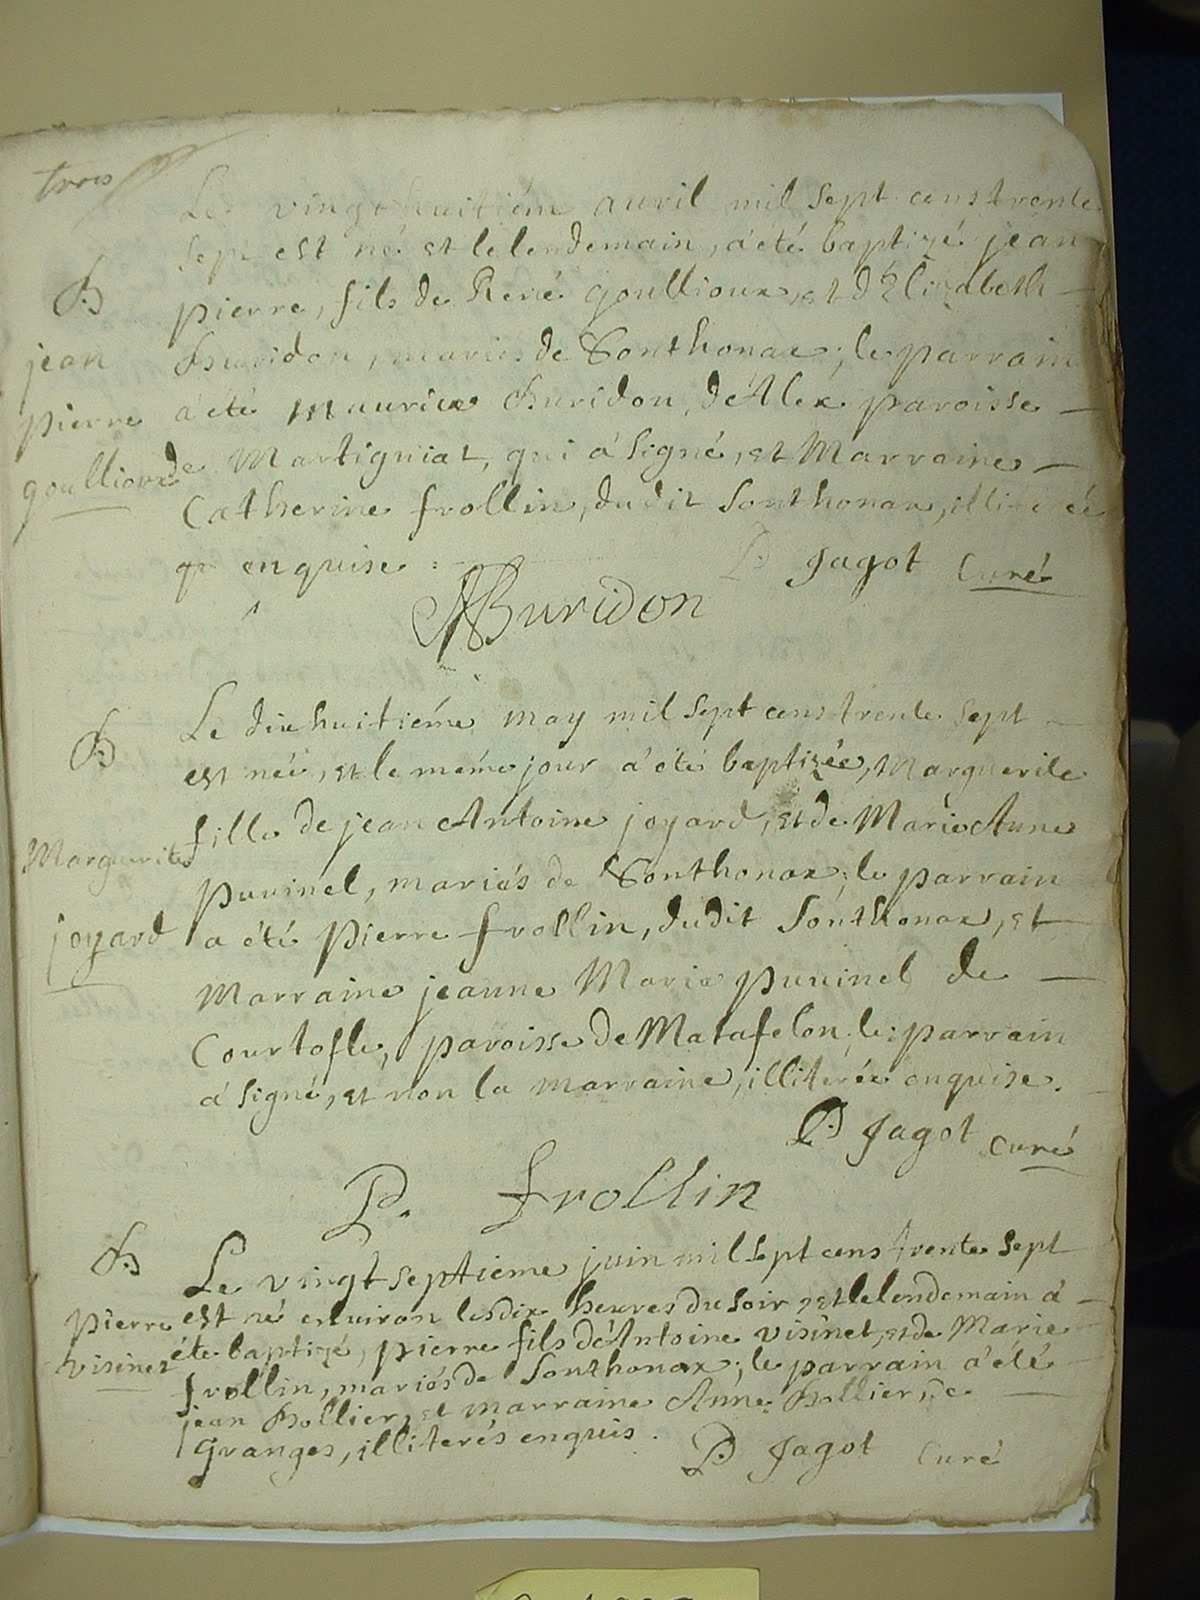 trois
Le vingt huitiéme auril mil sept cens trente
sept est né et le lendemain, a été baptizé jean
B
pierre, fils de René goullioux, et d'Elizabeth
jean
Buridon, mariés de Sonthonax; le parrain
pierre
a été Maurice Buridon, d'Alex paroisse
goullioux
de Martigniat, qui á signé, et Marraine
Catherine frollin, dudit Sonthonax,
enquise.
P. Jagot Curé
Buridon
B
Le dix huitiéme may mil sept cens trente sept
est née, et le méme jour á été baptizée, Marguerite
fille de jean Antoine joyard, et de Marie Anne
Marguerite
Puuinel, mariés de Sonthonax; le parrain
joyard
a été pierre frollin, dudit Sonthonax, et
Marraine jeanne Marie puuinel de
Courtofle, paroisse de Matafelon; le parrain
á signé, et non la marraine, illiterée enquise.
P. Jagot curé
P. frollin
B
Le vingt septiéme juin mil sept cens trente sept
pierre
est né enuiron les dix heures du soir, et le lendemain á
visinet
été baptizé, pierre fils d'Antoine visinet, et de Marie
frollin, mariés de Sonthonax; le parrain á été
jean Bollier, et marraine Anne Bollier, de
Granges, illiterés enquis.
P. Jagot Curé